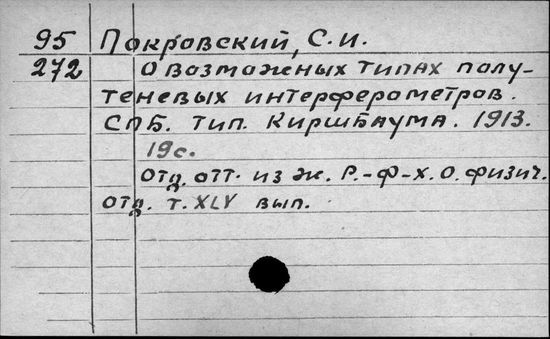 95 Покровский, С.И.
272 О возможных типах полу-
теневых интерферометров.
СПБ. тип. Киршбаума. 1913.
19с.
Отд. отт. из ж. Р.-Ф-х. О. физич.
отд. т. XLV вып.